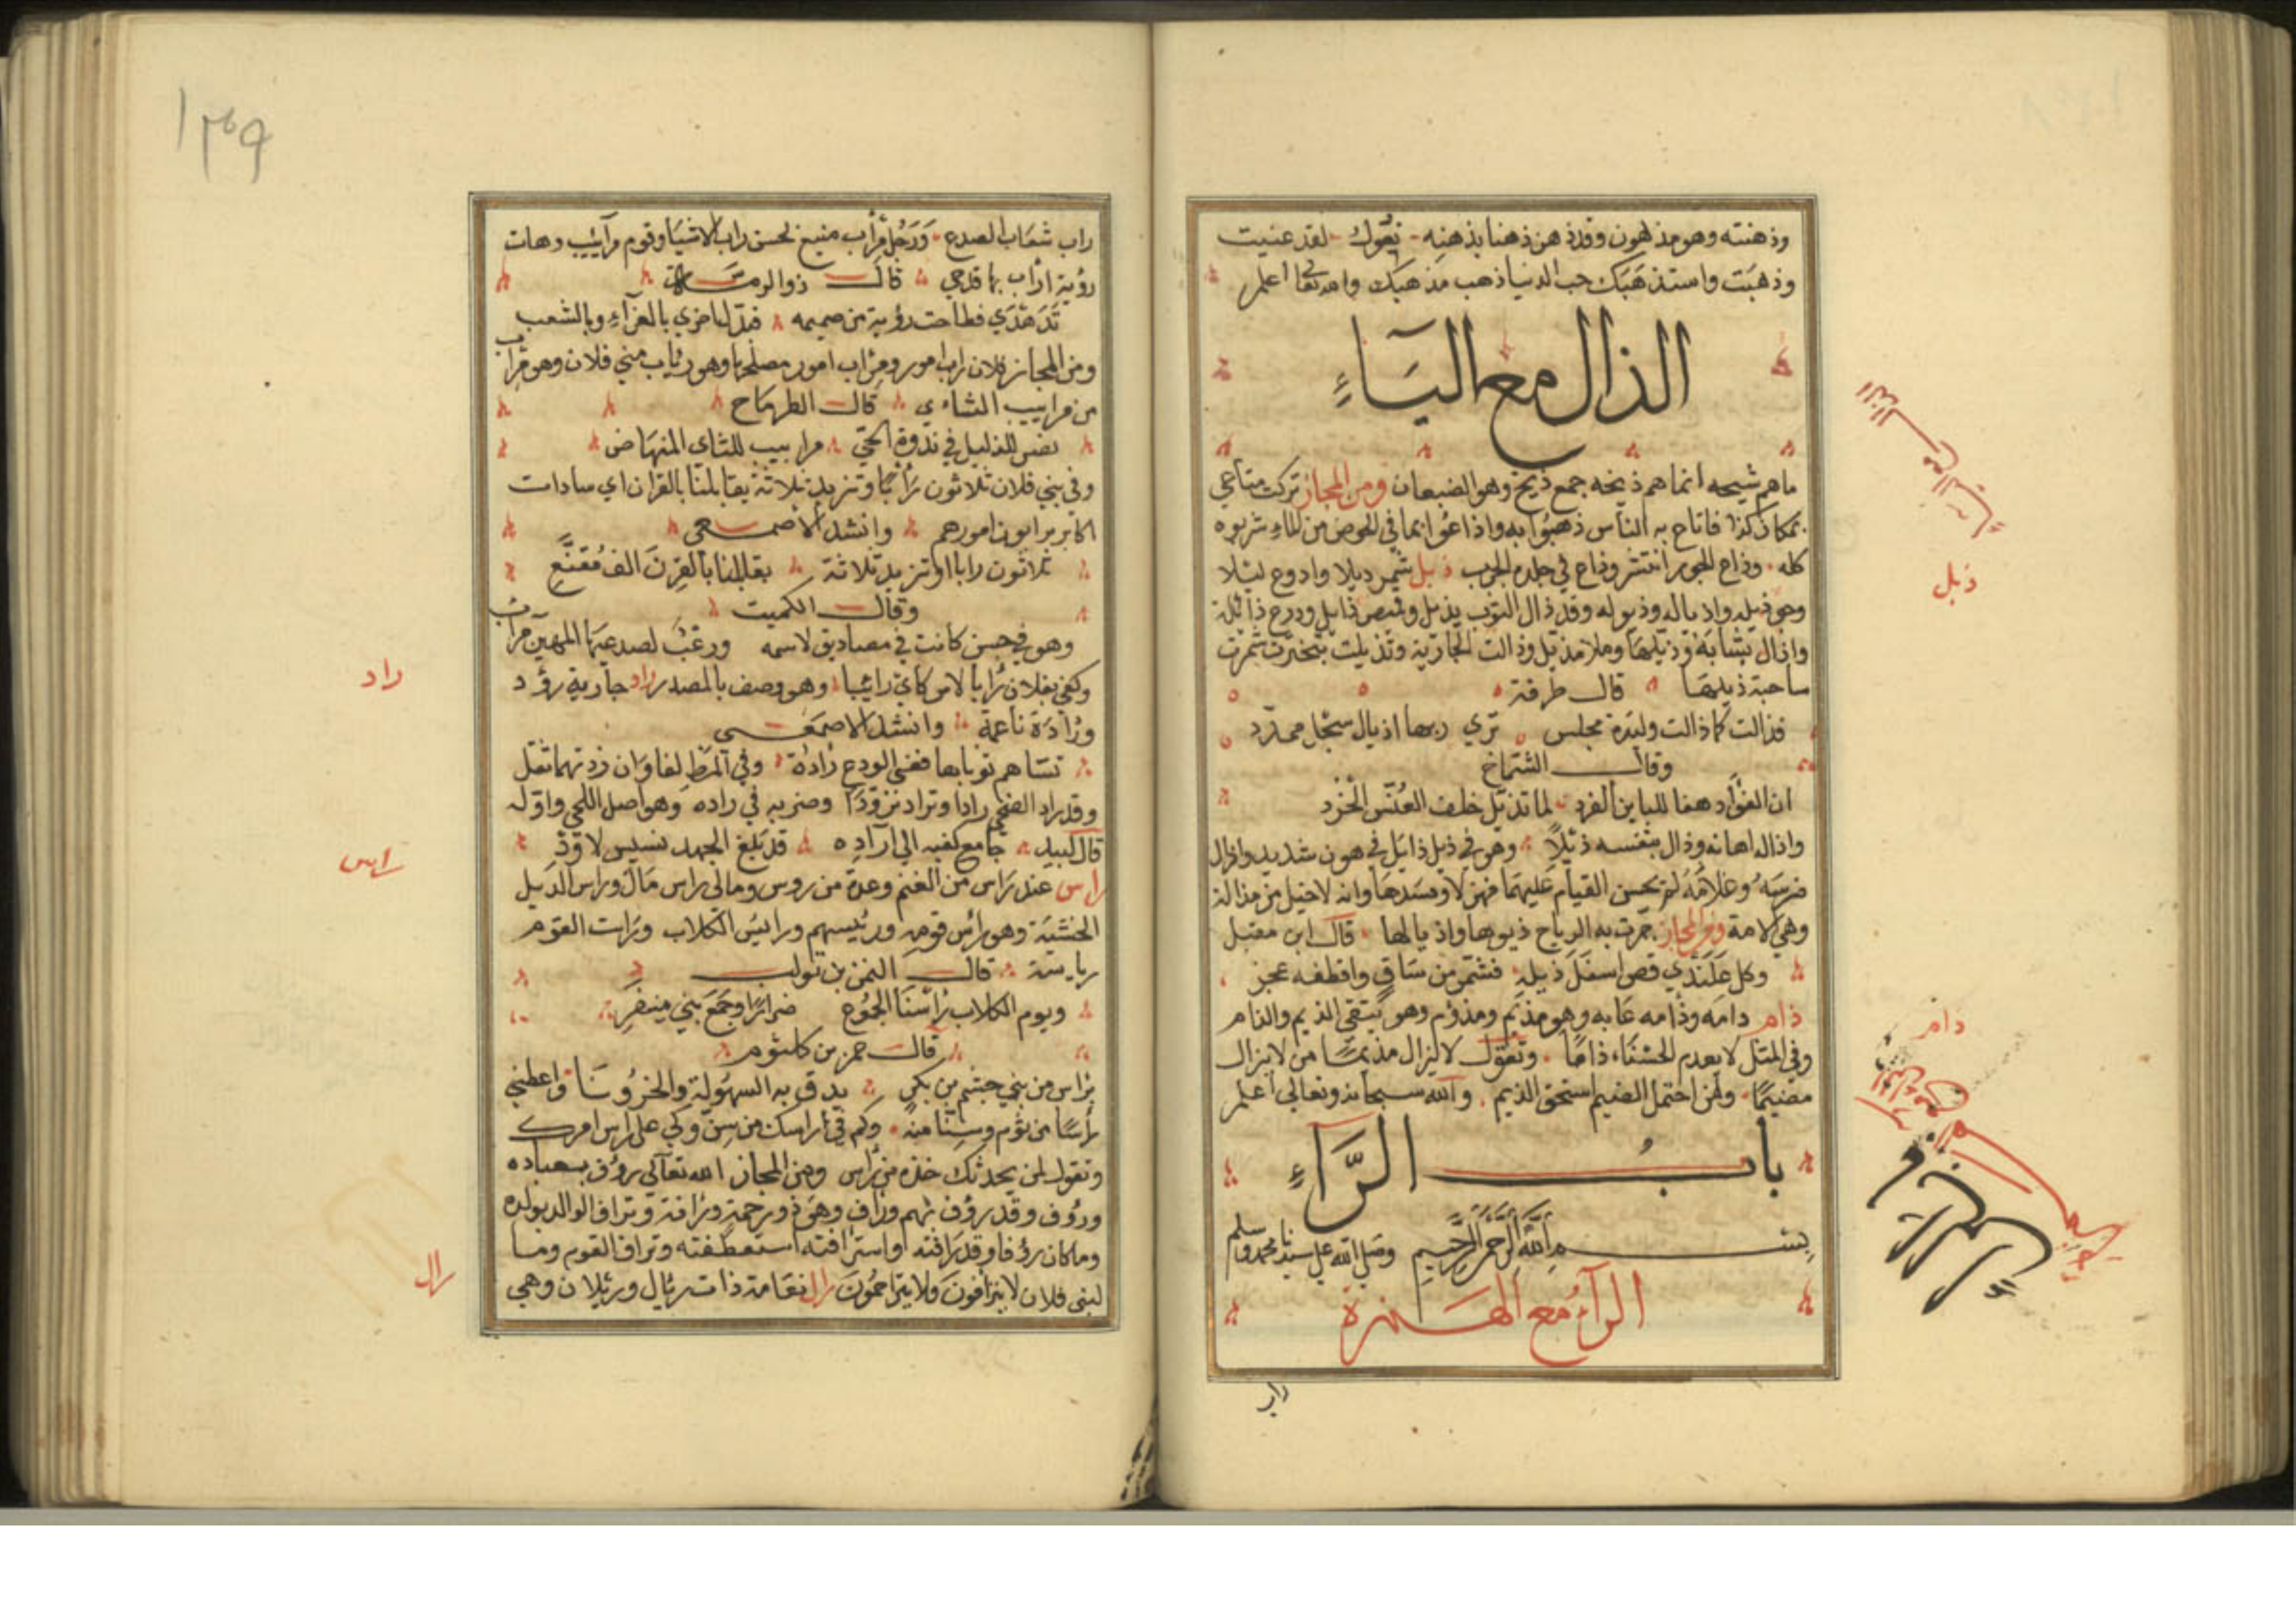 وذهنته وهو مذهون وقد ذهن ذهنا بذهنه نقول لقد عنيت
وذهبت واستذهبك حب الدنيا ذهب مذهبك والله تعالى اعلم
الذال مع الياء
ماهم شيحه انما هم ذيخه جمع ذيخ وهو الضبعان ومن المجاز تركت متاعي
بمكان كذا فاتاح به الناس ذهبوا به واذاعوا بما في الحوض من الماء شربوه
كله وذاع الجور انتشر وذاع في جلده الجرب ذيل شمر ذيلا وادرع ليلا
وهو ذيله واذياله وذيوله وقد ذال الثوب يذيل وقميص ذايل ودرع ذائلة
واذال ثيابه وذيلها وملا مذيل وذالت الجارية وتذيلت تبخترت شمرت
ساحبة ذيلها قال طرفة
فذالت كما ذالت وليدة مجلس تري ربها اذيال سحل ممدد
وقال الشماخ
ان الفؤاد هفا للباين الفرد لما تذيل خلف العنس الخرد
واذاله اهانه وذال بنفسه ذيلا وهو في ذيل ذايل في هون شديد واذال
فرسه وغلامه لم يحسن القيام عليهما فهزلا وفسدها وانه لاخيل من مذالة
وهي الامة ومن المجاز جرت به الرياح ذيولها واذيالها قال ابن مقبل
وكل علندي قص اسفل ذيله فشمر من ساق واقطفه عجز
ذام ذامه وذامه عابه وهو مذيم ومذؤم وهو يتقي الذيم والذام
وفي المثل لا يعدم الحسناء ذاما وتقول لا يزال مذيما من لا يزال
مضيما ولمن احتمل الضيم استحق الذيم والله سبحانه وتعالى اعلم
باب الراء
بسم الله الرحمن الرحيم وصلى الله على سيدنا محمد وسلم
الراء مع الهمزة
راب
ذيل
ذام
١٣٩
راب شعاب الصدع ورجل مراب منيع لحسن راب الاشيا وقوم مرآئيب وهات
رؤبة اراب بها قدحي قال ذو الرمة
تدهدي فطاحت رؤبة من صميمه فبدل اخري بالغراء وبالشعب
ومن المجاز فلان راب امور ومراب امور مصلحها وهو رئاب مني فلان وهو مراب
من مرابيب الثاي قال الطرماح
نصر للذليل في ندوة الحي مرابيب للثاي المنهاض
وفي بني فلان ثلاثون رأبا وتزيد ثلاثة يقابلنا بالقران اي سادات
اكابر يرابون امورهم وانشد الاصمعي
ثلاثون رابا او تزيد ثلاثة يقابلنا بالقرن الف مقنع
وقال الكميت
وهو في حسن كانت في مصاديق لاسمه ورغب لصدعيها المهين مراب
وكفي بفلان رأبا لامر كاي رائبا وهو وصف بالمصدر راد جارية رؤد
ورأدة ناعمة وانشد الاصمعي
تساهم ثوباها ففي الدرع رادة وفي المرط لفاوان ردتهما ثقل
وقد راد الضحي رادا وتراد تزودا وضربه في راده وهو اصل اللحي واوله
قال لبيد جامع كفيه الي آراده قد بلغ الجهد نسيس لاوذ
راس عند راس من الغنم وعدة من روس ومالي راس مال وراس الدبيل
الخشبة وهو رأس قومه ورئيسهم ورايس الكلاب ورات القوم
رياسة قال النمر بن تولب
ويوم الكلاب رأسنا الجموع ضرارا وجمع بني منضر
قال عمرو بن كلثوم
برأس من بني جشم بن بكر يدق به السهولة والحزونا واعطني
رأسا من ثوم وسنا منه وكم في رأسك من سن وكي على راس امرك
وتقول لمن يحدثك خذه من رأس ومن المجاز الله تعالى رؤف بعباده
ورؤف وقد رؤف بهم وراف وهو ذو رحمة ورأفة وتراف الوالد بولده
وماكان رؤفا وقد رافته واسترافته استعطفته وتراف القوم وما
لبني فلان لا يتراؤفون ولا يتراحمون رال نعامة ذات رئال ورئلان وهي
راد
راس
رال